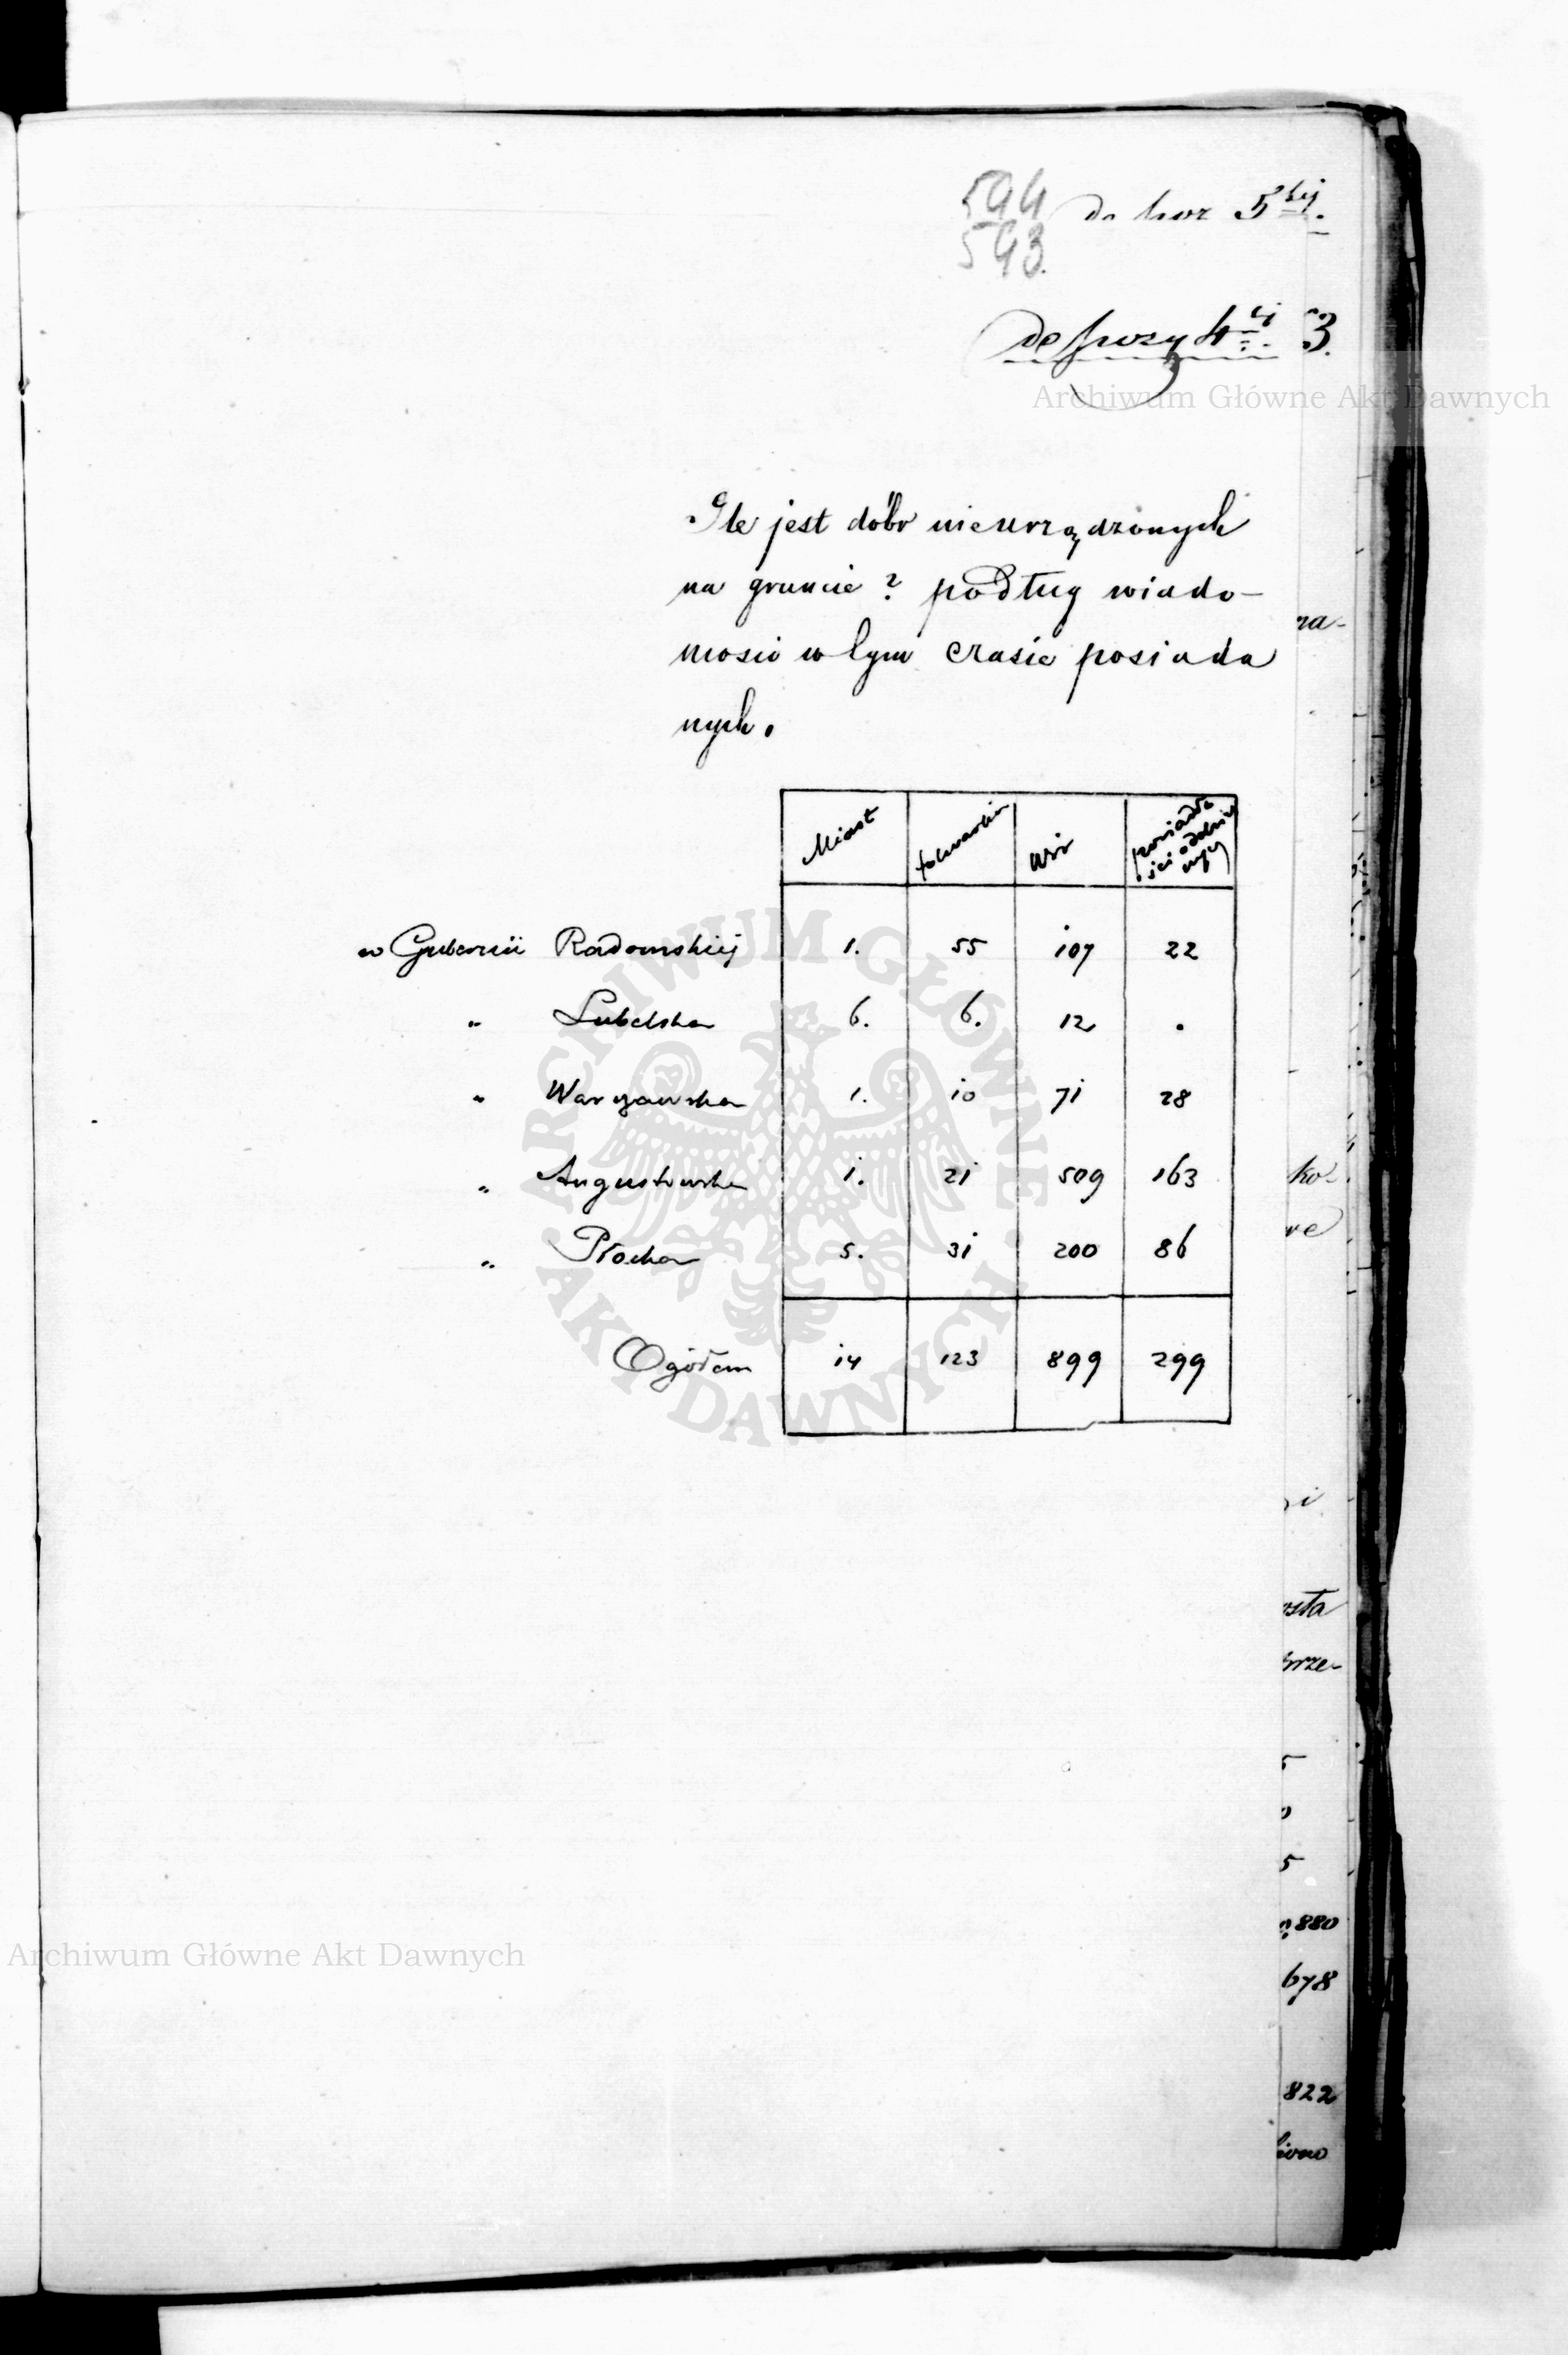 594 do kwz 5tej.
593.
do pozy 4tej 3.
Archiwum Główne Akt Dawnych
Ile jest dóbr nieurządzonych
na gruncie? podług wiado-
mości w tym czasie posiada
nych.
Miast folwarków Wsi posiadło ści oddziel nych
w Gubernii Radomskiej 1. 55 107 22
" Lubelska 6. 6. 12 .
" Warszawska 1. 10 71 28
" Augustowska 1. 21 509 163
" Płocka 5. 31 200 86
Ogółem 14 123 899 299
ARCHIWUM GŁÓWNE AKT DAWNYCH
Archiwum Główne Akt Dawnych
ra-
ko-
we
i
sta
brze-
5
0
5
880
678
822